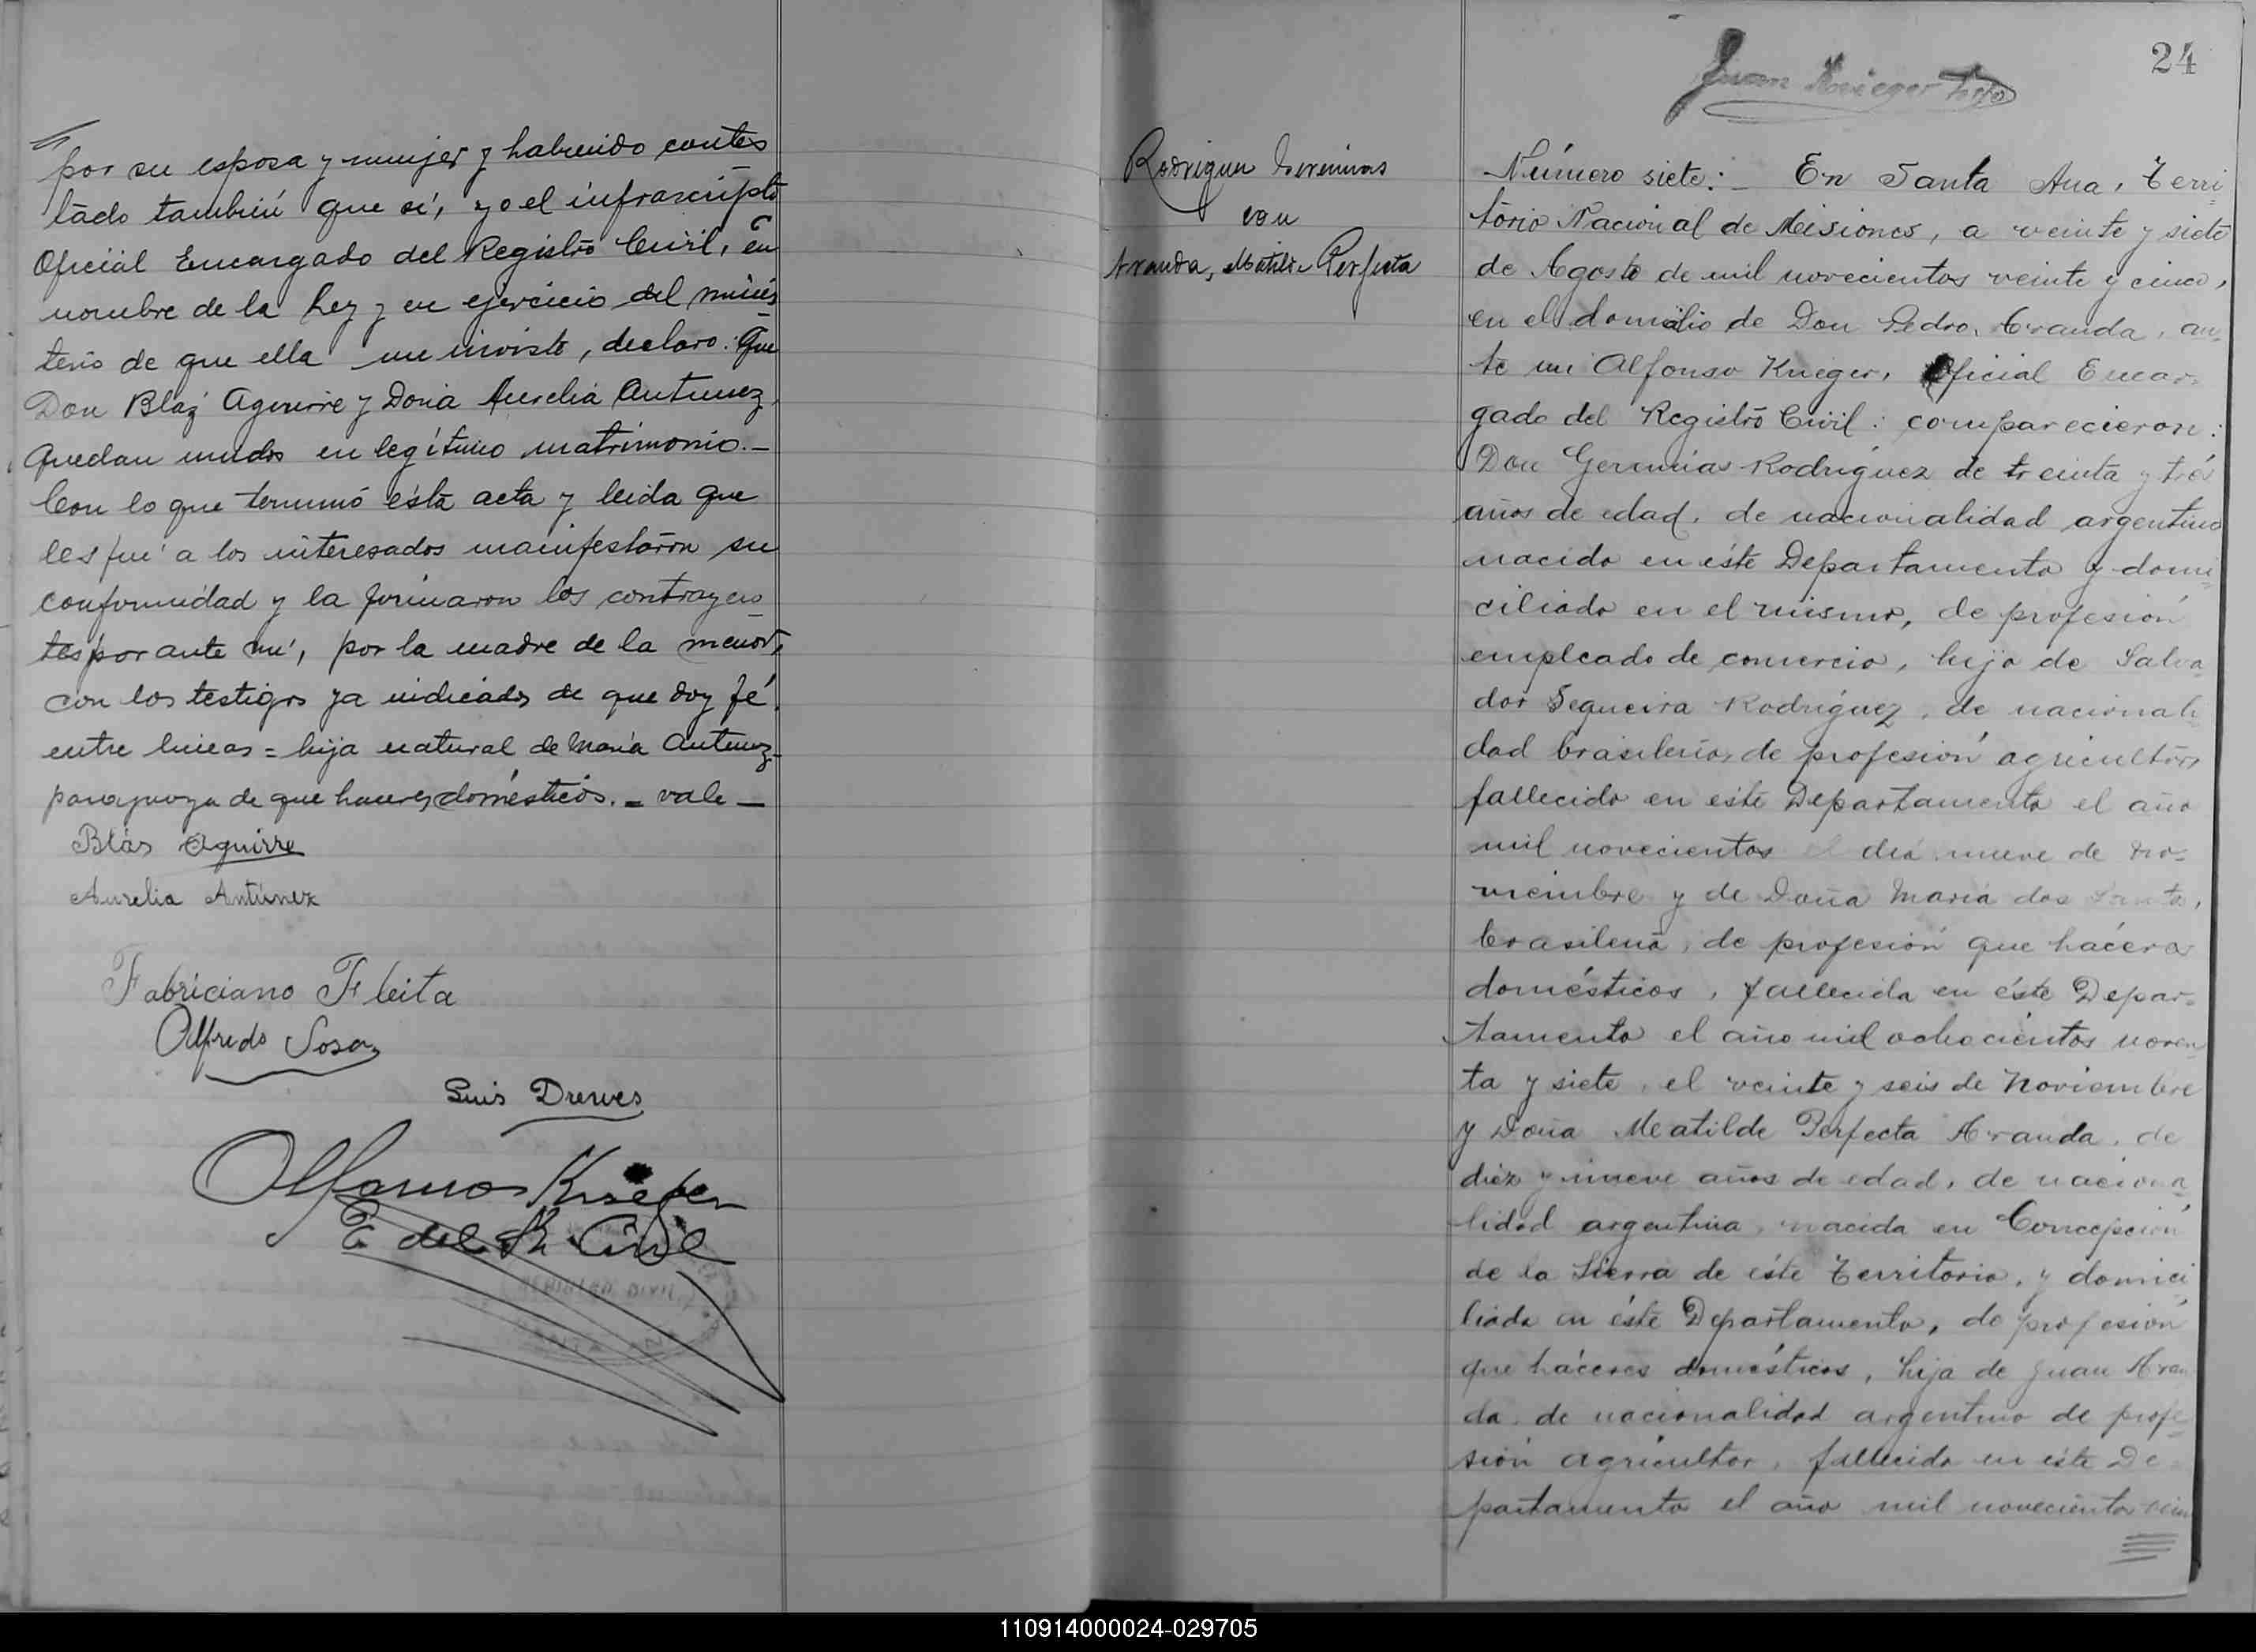 por su esposa y mujer y habiendo contes
tado también que sí, yo el infrascripto
Oficial Encargado del Registro Civil, en
nombre de la Ley y en ejercicio del minis
terio de que ella me inviste, declaro: Que
Don Blaz Aguirre y Doña Aurelia Antunez,
quedan unidos en legítimo matrimonio.—
Con lo que terminó ésta acta y leida que
les fué a los interesados manifestaron su
conformidad y la firmaron los contrayen
tes por ante mí, por la madre de la menor,
con los testigos ya indicados de que doy fé.
entre lineas = hija natural de Maria Antunez
paraguaya de que haceres domésticos. = vale —
Blás Aguirre
Aurelia Antúnez
Fabriciano Fleita
Alfredo Sosa
Luis Drewes
Alfonso Krieger
E. del R. Civil
REGISTRO CIVIL
24
Juan Krieger
Rodriguez Geremias
con
Aranda, Matilde Perfecta
Número siete:— En Santa Ana, Terri
torio Nacional de Misiones, a veinte y siete
de Agosto de mil novecientos veinte y cinco,
en el domicilio de Don Pedro Aranda, an
te mi Alfonso Krieger, Oficial Encar
gado del Registro Civil: comparecieron:
Don Geremias Rodriguez de treinta y trés
años de edad, de nacionalidad argentino
nacido en éste Departamento y domi
ciliado en el mismo, de profesión
empleado de comercio, hijo de Salva
dor Sequeira Rodriguez, de nacionali
dad brasileño, de profesión agricultor,
fallecido en éste Departamento el año
mil novecientos el dia nueve de no-
viembre y de Doña Maria dos
brasileña, de profesión que háceres
domésticos, fallecida en éste Depar=
tamento el año mil ochocientos noven
ta y siete, el veinte y seis de Noviembre
y Doña Matilde Perfecta Aranda, de
diez y nueve años de edad, de naciona
lidad argentina, nacida en Concepción
de la Sierra de éste Territorio, y domici
liada en éste Departamento, de profesión
que háceres domésticos, hija de Juan Aran
da, de nacionalidad argentino de profe
sión agricultor, fallecido en éste De
partamento el año mil novecientos vein
110914000024-029705